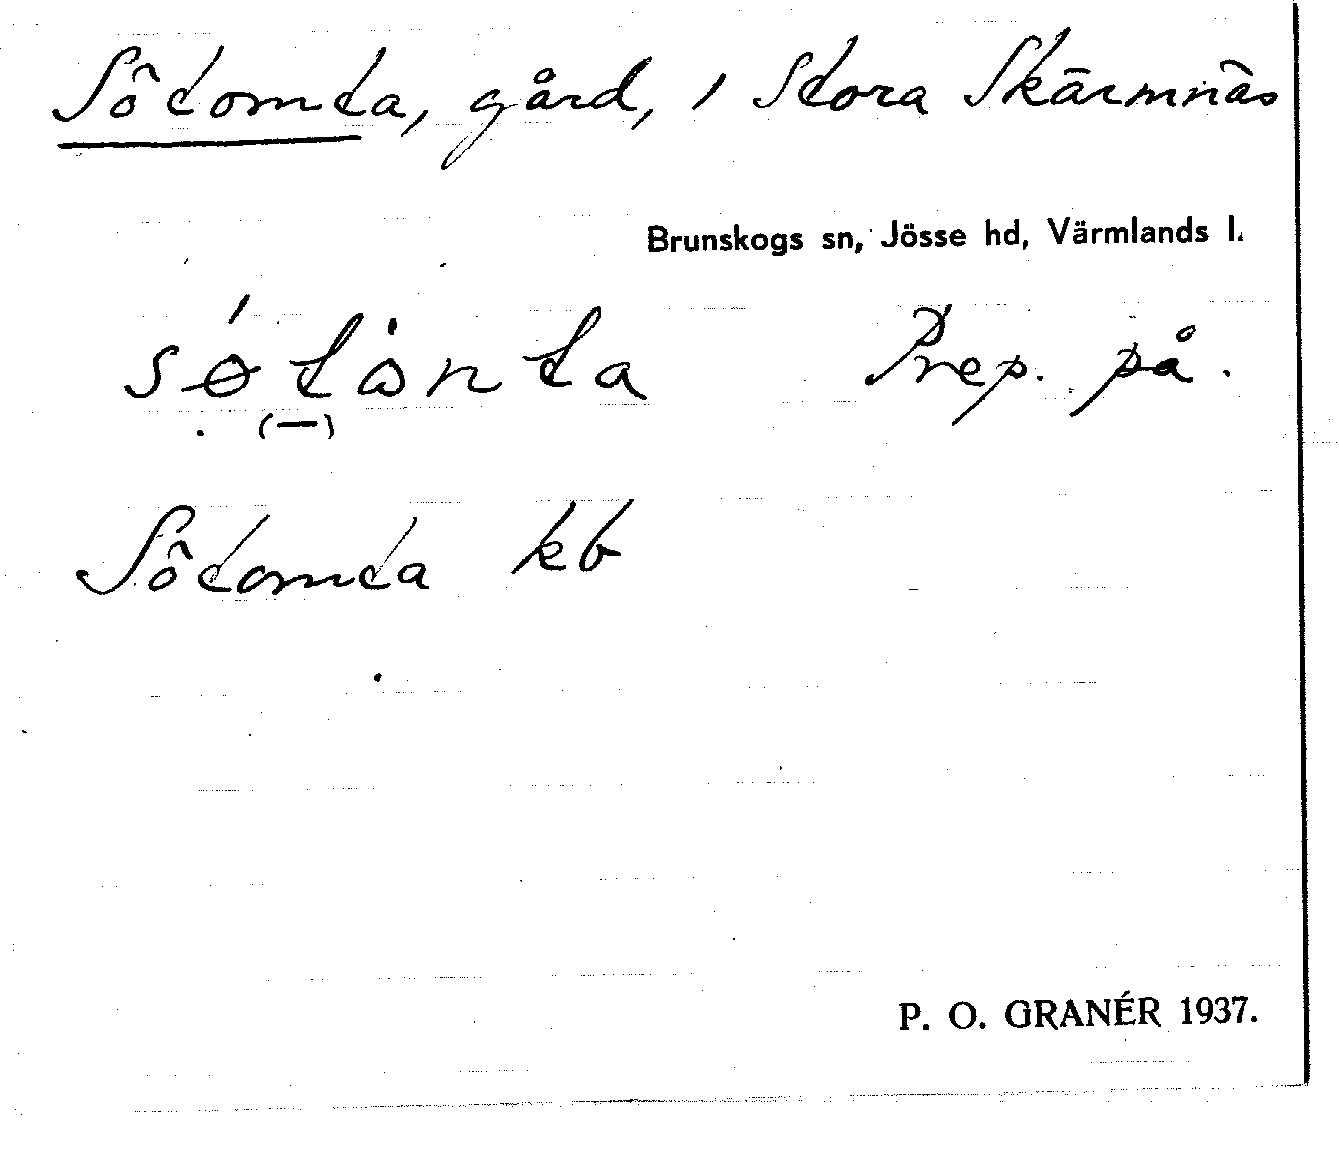 Sötomta, gård, i Stora Skärmnäs
Brunskogs sn, Jösse hd, Värmlands l.
Prep. på.
(—)
Sötomta kb
P. O. GRANÉR 1937.